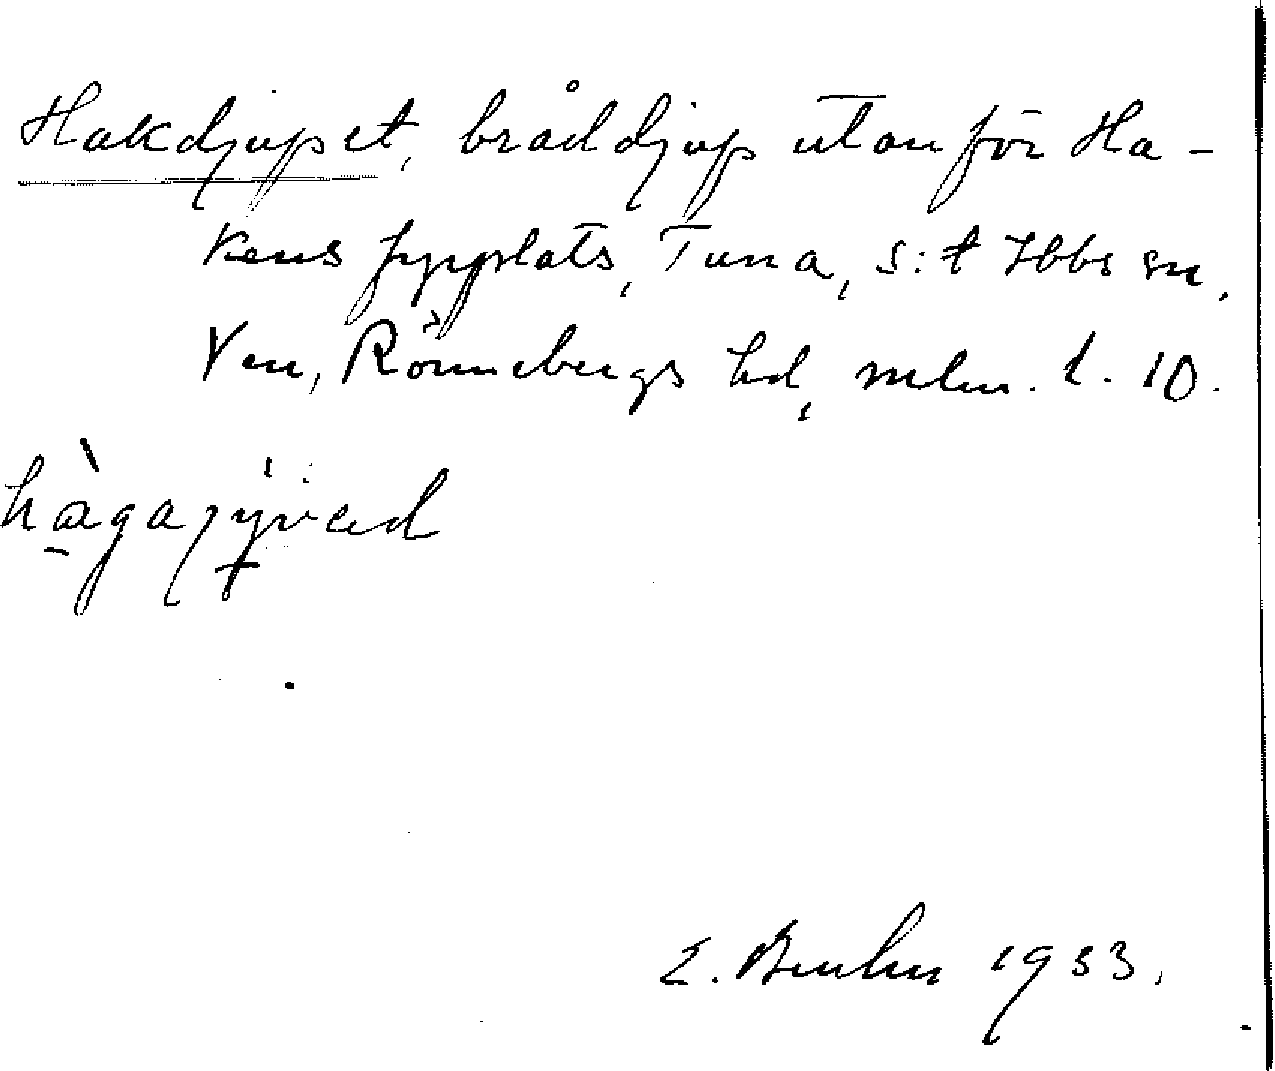 Hakdjupet, bråddjup utanför Ha-
kens fyrplats, Tuna, S:t Ibbs sn,
Ven, Rönnebergs hd, Mlm. l. 10.
hàgajývəd
1933.